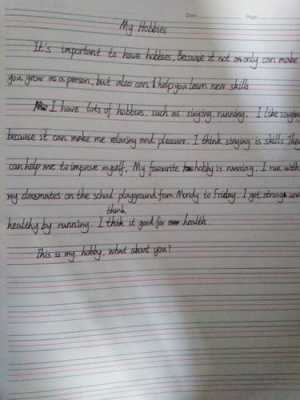 Date Page
My Hobbies
It's important to have hobbies, Because it not only can make
you grow as a person, but also can help you learn new skills
I have lots of hobbies. such as singing, running. I like
because it can make me relaxing and pleasure. I think singing is skills
can help me to improve myself. My favourite hobby is running. I run with
my classmates on the school playground from Monday to Friday. I get strong
healthy by running. I think it good for health
This is my hobby, what about you?